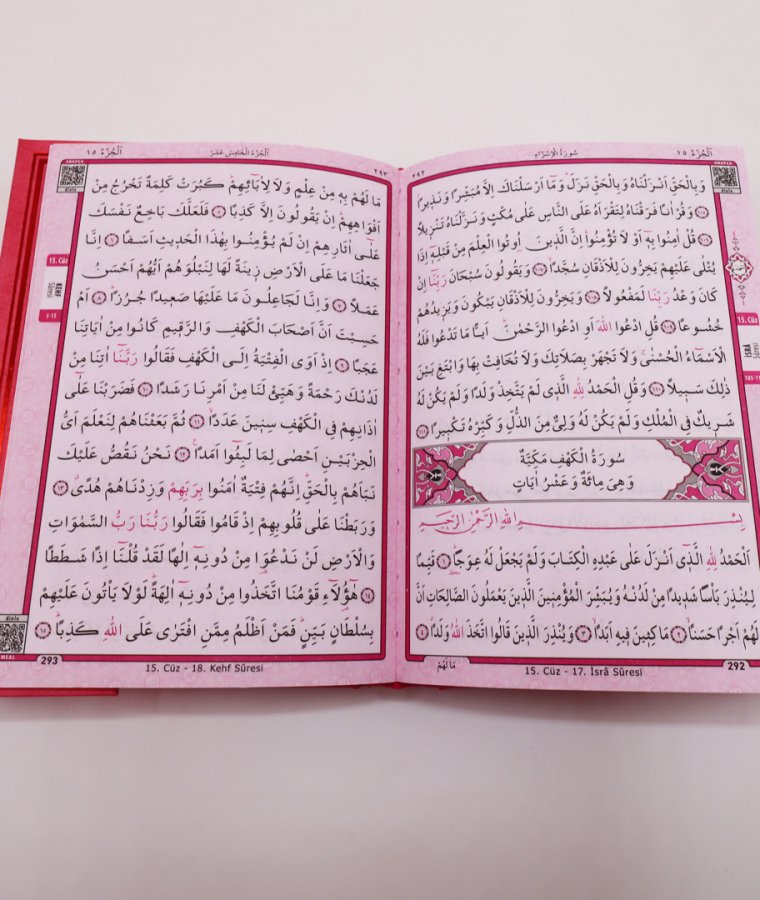 اَلْجُزْءُ ١٥
سُورَةُ الْاِسْرَاءِ
٢٩٢
وَبِالْحَقِّ اَنْزَلْنَاهُ وَبِالْحَقِّ نَزَلَۜ وَمَٓا اَرْسَلْنَاكَ اِلَّا مُبَشِّرًا وَنَذِيرًاۢ
﴿١٠٥﴾ وَقُرْاٰنًا فَرَقْنَاهُ لِتَقْرَاَهُ عَلَى النَّاسِ عَلٰى مُكْثٍ وَنَزَّلْنَاهُ تَنْزِيلًا
﴿١٠٦﴾ قُلْ اٰمِنُوا بِهٖٓ اَوْ لَا تُؤْمِنُواۜ اِنَّ الَّذٖينَ اُو۫تُوا الْعِلْمَ مِنْ قَبْلِهٖٓ اِذَا
يُتْلٰى عَلَيْهِمْ يَخِرُّونَ لِلْاَذْقَانِ سُجَّدًاۙ ﴿١٠٧﴾ وَيَقُولُونَ سُبْحَانَ رَبِّنَٓا اِنْ
كَانَ وَعْدُ رَبِّنَا لَمَفْعُولًا ﴿١٠٨﴾ وَيَخِرُّونَ لِلْاَذْقَانِ يَبْكُونَ وَيَزٖيدُهُمْ
خُشُوعًا ﴿١٠٩﴾ قُلِ ادْعُوا اللّٰهَ اَوِ ادْعُوا الرَّحْمٰنَۜ اَيًّا مَا تَدْعُوا فَلَهُ
الْاَسْمَٓاءُ الْحُسْنٰىۚ وَلَا تَجْهَرْ بِصَلَاتِكَ وَلَا تُخَافِتْ بِهَا وَابْتَغِ بَيْنَ
ذٰلِكَ سَبٖيلًا ﴿١١٠﴾ وَقُلِ الْحَمْدُ لِلّٰهِ الَّذٖي لَمْ يَتَّخِذْ وَلَدًا وَلَمْ يَكُنْ لَهُ
شَرٖيكٌ فِي الْمُلْكِ وَلَمْ يَكُنْ لَهُ وَلِيٌّ مِنَ الذُّلِّ وَكَبِّرْهُ تَكْبٖيرًا ﴿١١١﴾
سُورَةُ الْكَهْفِ مَكِّيَّةٌ
وَهِيَ مِائَةٌ وَعَشْرُ اٰيَاتٍ
بِسْمِ اللّٰهِ الرَّحْمٰنِ الرَّحٖيمِ
اَلْحَمْدُ لِلّٰهِ الَّذٖٓي اَنْزَلَ عَلٰى عَبْدِهِ الْكِتَابَ وَلَمْ يَجْعَلْ لَهُ عِوَجًاۜ ﴿١﴾ قَيِّمًا
لِيُنْذِرَ بَاْسًا شَدٖيدًا مِنْ لَدُنْهُ وَيُبَشِّرَ الْمُؤْمِنٖينَ الَّذٖينَ يَعْمَلُونَ الصَّالِحَاتِ اَنَّ
لَهُمْ اَجْرًا حَسَنًاۙ ﴿٢﴾ مَاكِثٖينَ فٖيهِ اَبَدًاۙ ﴿٣﴾ وَيُنْذِرَ الَّذٖينَ قَالُوا اتَّخَذَ اللّٰهُ وَلَدًاۗ ﴿٤﴾
مَا لَهُمْ
292
15. Cüz - 17. İsrâ Sûresi
ARAPÇA
dinle
15. Cüz
İSRÂ
Sûresi
اَلْجُزْءُ ١٥
اَلْجُزْءُ الْخَامِسُ عَشَرَ
٢٩٣
مَا لَهُمْ بِهٖ مِنْ عِلْمٍ وَلَا لِاٰبَٓائِهِمْۜ كَبُرَتْ كَلِمَةً تَخْرُجُ مِنْ
اَفْوَاهِهِمْۜ اِنْ يَقُولُونَ اِلَّا كَذِبًا ﴿٥﴾ فَلَعَلَّكَ بَاخِعٌ نَفْسَكَ
عَلٰٓى اٰثَارِهِمْ اِنْ لَمْ يُؤْمِنُوا بِهٰذَا الْحَدٖيثِ اَسَفًا ﴿٦﴾ اِنَّا
جَعَلْنَا مَا عَلَى الْاَرْضِ زٖينَةً لَهَا لِنَبْلُوَهُمْ اَيُّهُمْ اَحْسَنُ
عَمَلًا ﴿٧﴾ وَاِنَّا لَجَاعِلُونَ مَا عَلَيْهَا صَعٖيدًا جُرُزًاۜ ﴿٨﴾ اَمْ
حَسِبْتَ اَنَّ اَصْحَابَ الْكَهْفِ وَالرَّقٖيمِ كَانُوا مِنْ اٰيَاتِنَا
عَجَبًا ﴿٩﴾ اِذْ اَوَى الْفِتْيَةُ اِلَى الْكَهْفِ فَقَالُوا رَبَّنَٓا اٰتِنَا مِنْ
لَدُنْكَ رَحْمَةً وَهَيِّئْ لَنَا مِنْ اَمْرِنَا رَشَدًا ﴿١٠﴾ فَضَرَبْنَا عَلٰٓى
اٰذَانِهِمْ فِي الْكَهْفِ سِنٖينَ عَدَدًاۙ ﴿١١﴾ ثُمَّ بَعَثْنَاهُمْ لِنَعْلَمَ اَيُّ
الْحِزْبَيْنِ اَحْصٰى لِمَا لَبِثُٓوا اَمَدًا۟ ﴿١٢﴾ نَحْنُ نَقُصُّ عَلَيْكَ
نَبَاَهُمْ بِالْحَقِّۜ اِنَّهُمْ فِتْيَةٌ اٰمَنُوا بِرَبِّهِمْ وَزِدْنَاهُمْ هُدًىۗ ﴿١٣﴾
وَرَبَطْنَا عَلٰى قُلُوبِهِمْ اِذْ قَامُوا فَقَالُوا رَبُّنَا رَبُّ السَّمٰوَاتِ
وَالْاَرْضِ لَنْ نَدْعُوَ۬ا مِنْ دُونِهٖٓ اِلٰهًا لَقَدْ قُلْنَٓا اِذًا شَطَطًا
﴿١٤﴾ هٰٓؤُ۬لَٓاءِ قَوْمُنَا اتَّخَذُوا مِنْ دُونِهٖٓ اٰلِهَةًۜ لَوْلَا يَاْتُونَ عَلَيْهِمْ
بِسُلْطَانٍ بَيِّنٍۜ فَمَنْ اَظْلَمُ مِمَّنِ افْتَرٰى عَلَى اللّٰهِ كَذِبًاۜ ﴿١٥﴾
293
15. Cüz - 18. Kehf Sûresi
ARAPÇA
dinle
15. Cüz
KEHF
Sûresi
5-15
dinle
MEAL